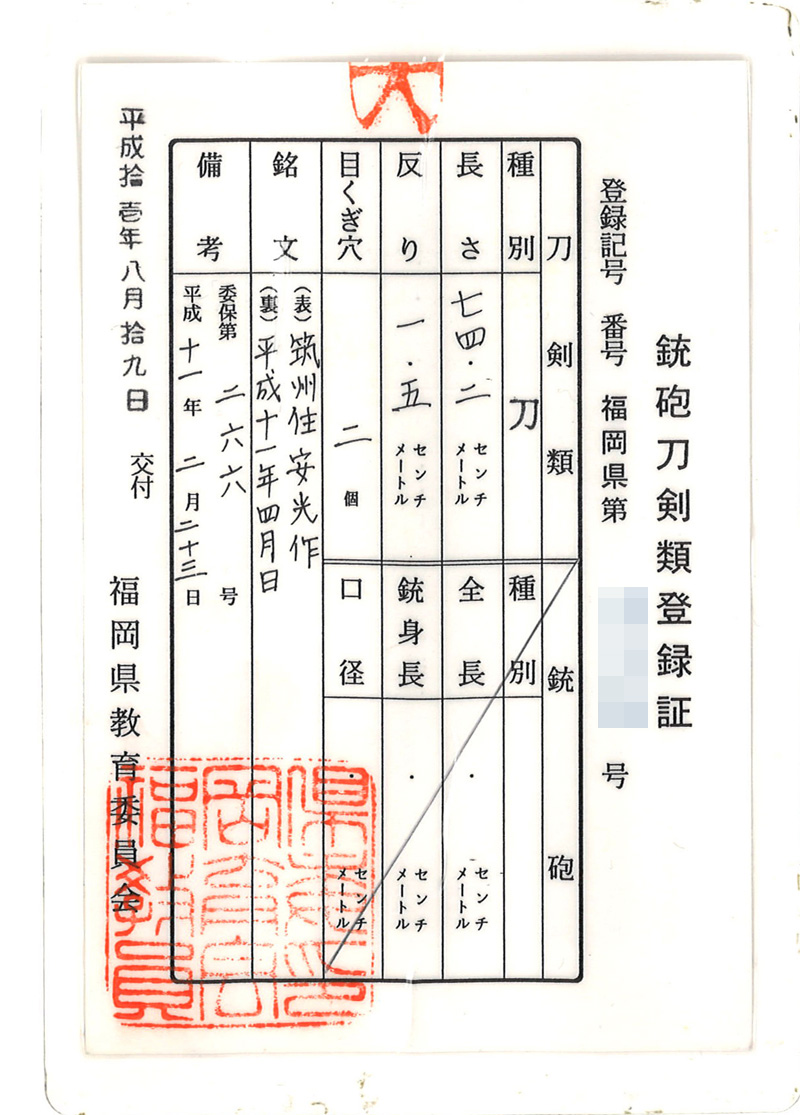 銃砲刀剣類登録証
登録記号 番号 福岡県第 号
刀剣類
種別 刀
長さ 七四・二 センチメートル
反り 一・五 センチメートル
目くぎ穴 二 個
銃砲
種別
全長 ・ センチメートル
銃身長 ・ センチメートル
口径 ・ センチメートル
銘文
(表) 筑州住安光作
(裏) 平成十一年四月日
備考
委保第 二六六 号
平成 十一 年 二 月 二十三 日
平成拾壱年八月拾九日 交付
福岡県教育委員会